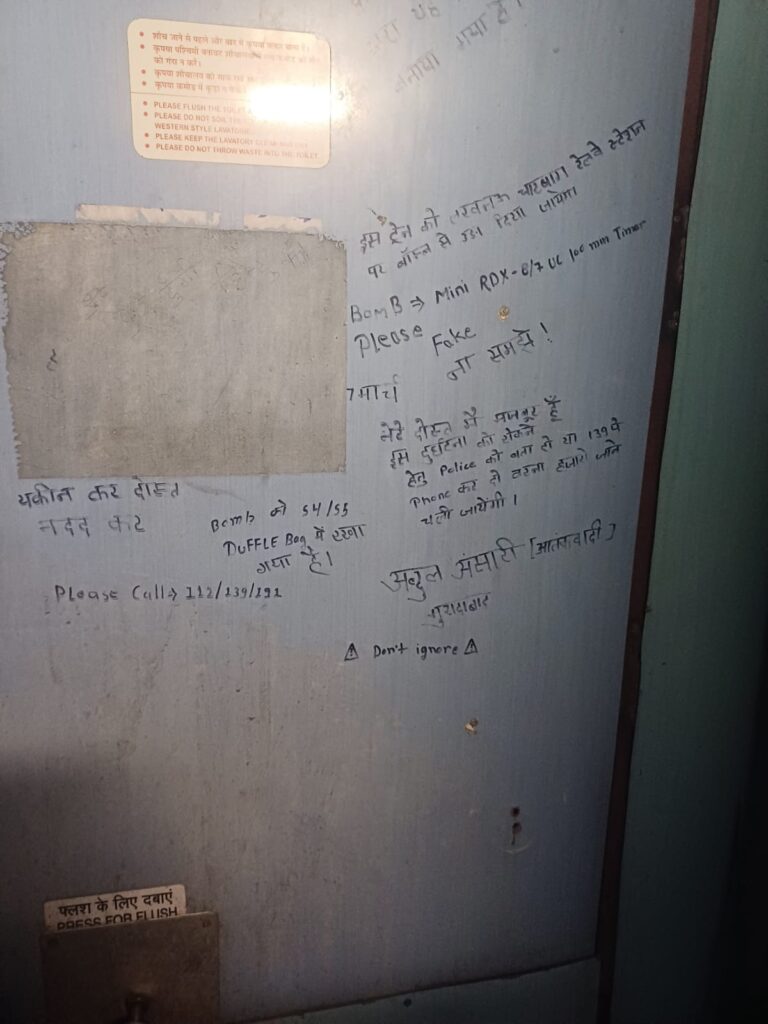 शौच जाने से पहले और बाद में कृपया फ्लश चलाएं।
कृपया पश्चिमी बनावट शौचालय
को गंदा न करें।
कृपया शौचालय को साफ
कृपया कमोड में कूड़ा न
PLEASE FLUSH THE TOILET
PLEASE DO NOT SOIL THE
WESTERN STYLE LAVATORIES
PLEASE KEEP THE LAVATORY CLEAN AND DRY
PLEASE DO NOT THROW WASTE INTO THE TOILET.
बनाया गया है।
इस ट्रेन को लखनऊ चारबाग रेलवे स्टेशन
पर बॉम्ब से उडा दिया जायेगा
BomB ⇒ Mini RDX-6/7 UL 100 mm Timer
Please Fake
ना समझे!
7 मार्च
मेरे दोस्त मैं मजबूर हूँ
इस दुर्घटना को रोकने
हेतु Police को बता दो या 139 पे
Phone कर दो वरना हजारो जाने
चली जायेंगी।
यकीन कर दोस्त
मदद कर
Bomb को S4/S5
DUFFLE Bag में रखा
गया है।
Please Call→ 112/139/191
अब्दुल अंसारी [आतंकवादी]
मुरादाबाद
⚠ Don't ignore ⚠
फ्लश के लिए दबाएं
PRESS FOR FLUSH